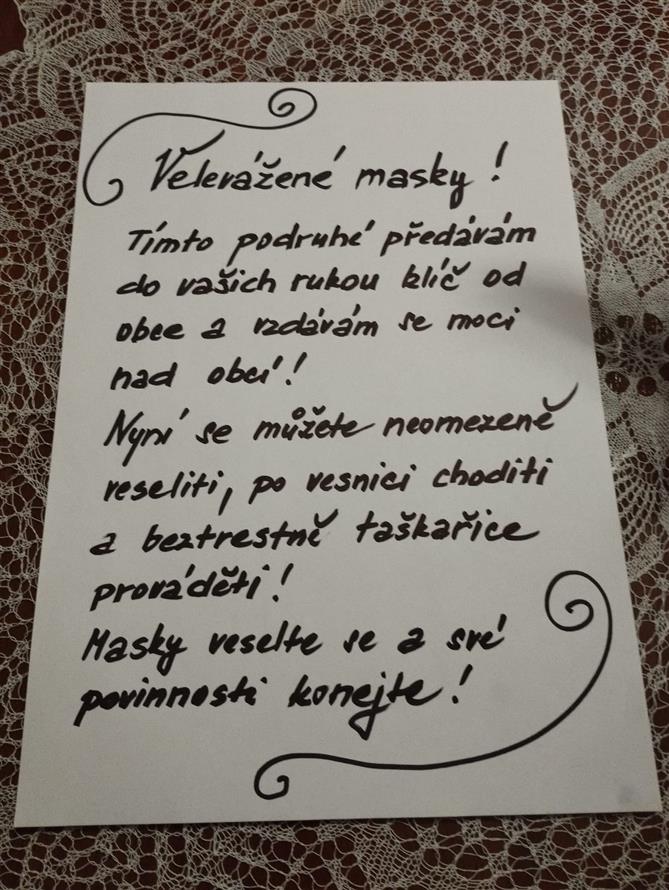 Velevážené masky!
Tímto podruhé předávám
do vašich rukou klíč od
obce a vzdávám se moci
nad obcí!
Nyní se můžete neomezeně
veseliti, po vesnici choditi
a beztrestně taškařice
prováděti!
Masky veselte se a své
povinnosti konejte!